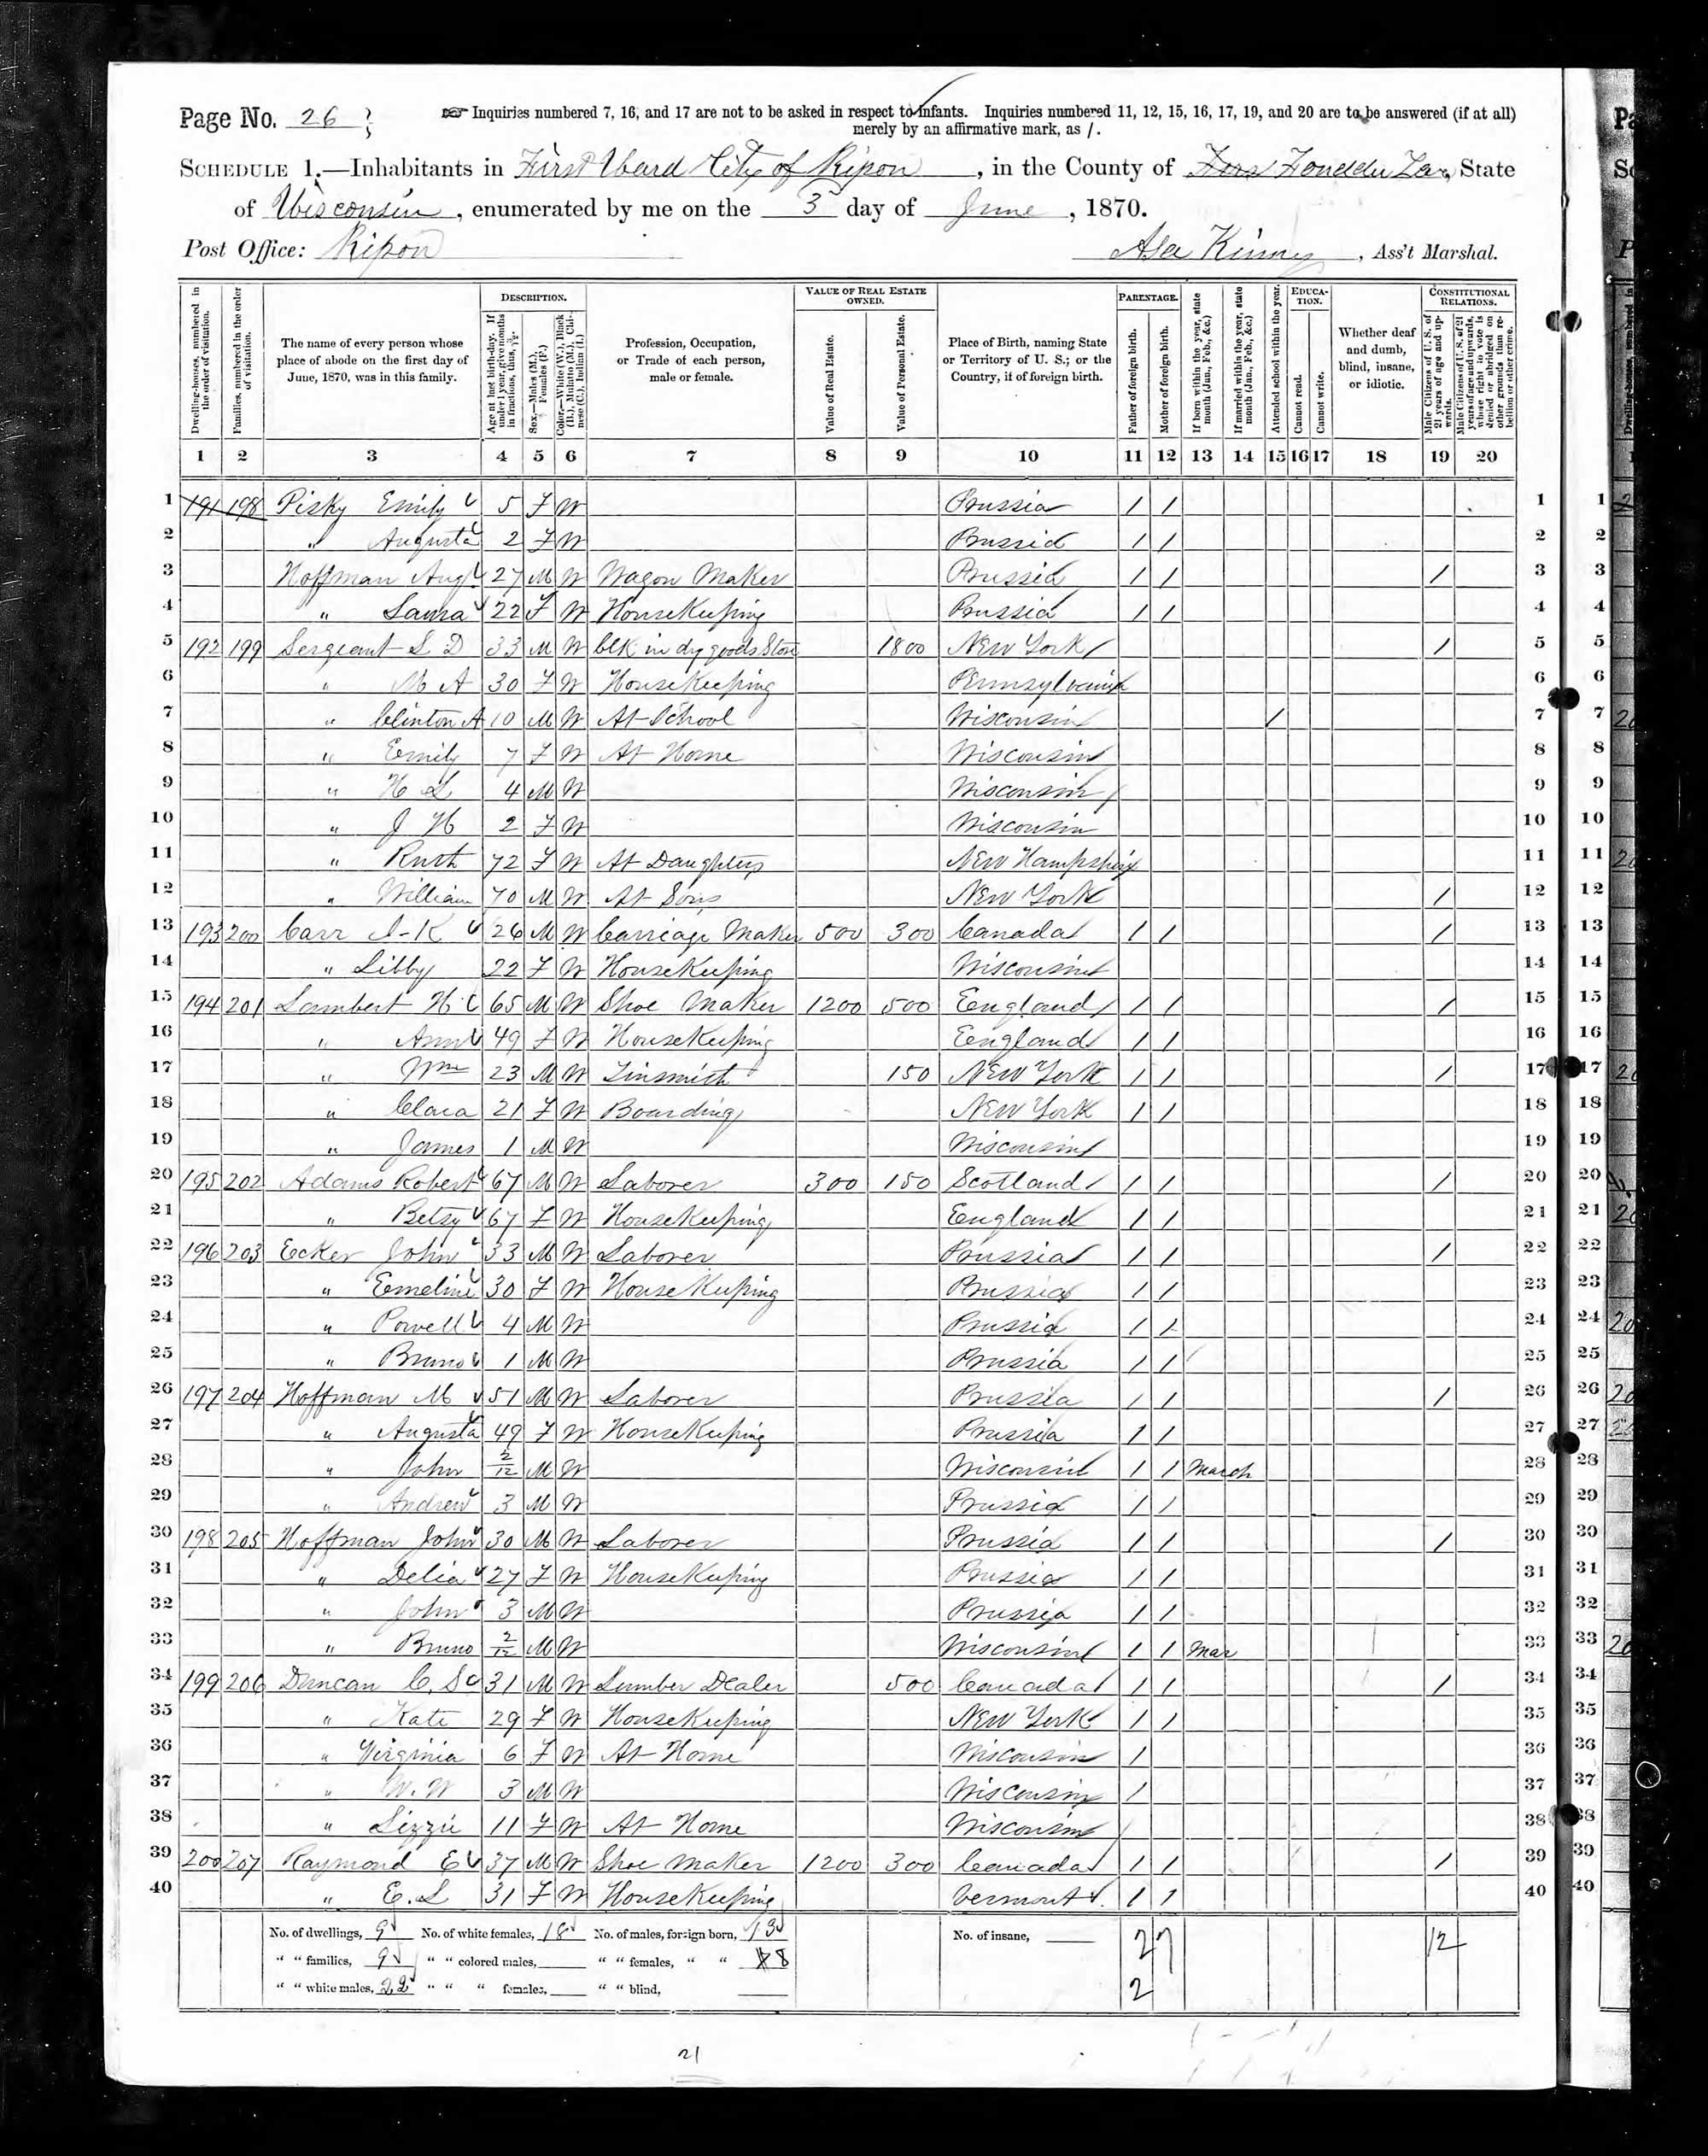 Page No. 26
Inquiries numbered 7, 16, and 17 are not to be asked in respect to infants. Inquiries numbered 11, 12, 15, 16, 17, 19, and 20 are to be answered (if at all)
merely by an affirmative mark, as /.
SCHEDULE 1.—Inhabitants in First Ward City of Ripon, in the County of Fonddu Lac, State
of Wisconsin, enumerated by me on the 3 day of June, 1870.
Post Office: Ripon Asa Kinney, Ass't Marshal.
Dwelling-houses, numbered in the order of visitation.
Families, numbered in the order of visitation.
The name of every person whose place of abode on the first day of June, 1870, was in this family.
DESCRIPTION.
Age at last birth-day. If under 1 year, give months in fractions, thus, 3/12.
Sex.—Males (M.), Females (F.)
Color.—White (W.), Black (B.), Mulatto (M.), Chinese (C.), Indian (I.)
Profession, Occupation, or Trade of each person, male or female.
VALUE OF REAL ESTATE OWNED.
Value of Real Estate.
Value of Personal Estate.
Place of Birth, naming State or Territory of U. S.; or the Country, if of foreign birth.
PARENTAGE.
Father of foreign birth.
Mother of foreign birth.
If born within the year, state month (Jan., Feb., &c.)
If married within the year, state month (Jan., Feb., &c.)
Attended school within the year.
EDUCATION.
Cannot read.
Cannot write.
Whether deaf and dumb, blind, insane, or idiotic.
CONSTITUTIONAL RELATIONS.
Male Citizens of U. S. of 21 years of age and upwards.
Male Citizens of U. S. of 21 years of age and upwards, whose right to vote is denied or abridged on other grounds than rebellion or other crime.
1 2 3 4 5 6 7 8 9 10 11 12 13 14 15 16 17 18 19 20
1 191 198 Pisky Emily 5 F W Prussia / / 1
2 " Augusta 2 F W Prussia / / 2
3 Hoffman Aug 27 M W Wagon Maker Prussia / / / 3
4 " Laura 22 F W HouseKeeping Prussia / / 4
5 192 199 Sergeant S D 33 M W Clk in dy goods Store 1800 New York / 5
6 " M A 30 F W HouseKeeping Pennsylvania 6
7 " Clinton A 10 M W At School Wisconsin / 7
8 " Emily 7 F W At Home Wisconsin 8
9 " H L 4 M W Wisconsin 9
10 " J H 2 F W Wisconsin 10
11 " Ruth 72 F W At Daughters New Hampshire 11
12 " William 70 M W At Sons New York / 12
13 193 200 Carr I-K 26 M W Carriage Maker 500 300 Canada / / / 13
14 " Libby 22 F W HouseKeeping Wisconsin 14
15 194 201 Lambert H 65 M W Shoe Maker 1200 500 England / / / 15
16 " Ann 49 F W HouseKeeping England / / 16
17 " Wm 23 M W Tinsmith 150 New York / / / 17
18 " Clara 21 F W Boarding New York / / 18
19 " James 1 M W Wisconsin 19
20 195 202 Adams Robert 67 M W Laborer 300 150 Scotland / / / 20
21 " Betsy 67 F W HouseKeeping England / / 21
22 196 203 Ecker John 33 M W Laborer Prussia / / / 22
23 " Emeline 30 F W HouseKeeping Prussia / / 23
24 " Powell 4 M W Prussia / / 24
25 " Bruno 1 M W Prussia / / 25
26 197 204 Hoffman M 51 M W Laborer Prussia / / / 26
27 " Augusta 49 F W HouseKeeping Prussia / / 27
28 " John 2/12 M W Wisconsin / / March 28
29 " Andrew 3 M W Prussia / / 29
30 198 205 Hoffman John 30 M W Laborer Prussia / / / 30
31 " Delia 27 F W HouseKeeping Prussia / / 31
32 " John 3 M W Prussia / / 32
33 " Bruno 2/12 M W Wisconsin / / Mar 33
34 199 206 Duncan C. S 31 M W Lumber Dealer 500 Canada / / / 34
35 " Kate 29 F W HouseKeeping New York / / 35
36 " Virginia 6 F W At Home Wisconsin / 36
37 " W. W 3 M W Wisconsin / 37
38 " Lizzie 11 F W At Home Wisconsin 38
39 200 207 Raymond E 37 M W Shoe Maker 1200 300 Canada / / / 39
40 " E. L 31 F W HouseKeeping Vermont / / 40
No. of dwellings, 9 No. of white females, 18 No. of males, foreign born, 13 No. of insane, 27 12
" " families, 9 " " colored males, " " females, " " 8
" " white males, 22 " " " females, " " blind, 2
21